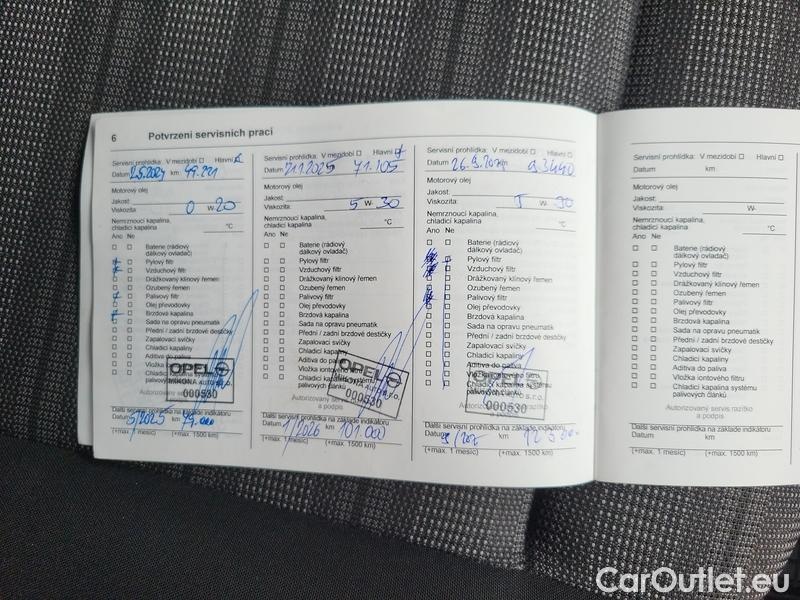 6 Potvrzení servisních prací
Servisní prohlídka: V mezidobí Hlavní
Datum 2.5.2024 km 49.221
Motorový olej
Jakost:
Viskozita: 0 W- 20
Nemrznoucí kapalina,
chladicí kapalina °C
Ano Ne
Baterie (rádiový
dálkový ovladač)
Pylový filtr
Vzduchový filtr
Drážkovaný klínový řemen
Ozubený řemen
Palivový filtr
Olej převodovky
Brzdová kapalina
Sada na opravu pneumatik
Přední / zadní brzdové destičky
Zapalovací svíčky
Chladicí kapaliny
Aditiva do
Vložka
Chladicí
palivových
OPEL
MIKONA AUTO s.r.o.
000530
Autorizovaný servis
Další servisní prohlídka na základě indikátoru
Datum 5/2025 km 79.000
(+max. 1 měsíc) (+max. 1500 km)
Servisní prohlídka: V mezidobí Hlavní
Datum 7.1.2025 71.105
Motorový olej
Jakost:
Viskozita: 5 W- 30
Nemrznoucí kapalina,
chladicí kapalina °C
Ano Ne
Baterie (rádiový
dálkový ovladač)
Pylový filtr
Vzduchový filtr
Drážkovaný klínový řemen
Ozubený řemen
Palivový filtr
Olej převodovky
Brzdová kapalina
Sada na opravu pneumatik
Přední / zadní brzdové destičky
Zapalovací svíčky
Chladicí kapaliny
Aditiva do paliva
Vložka iontového filtru
Chladicí kapalina systému
palivových článků
OPEL
MIKONA AUTO s.r.o.
000530
Autorizovaný
a podpis
Další servisní prohlídka na základě indikátoru
Datum 1/2026 km 101.000
(+max. 1 měsíc) (+max. 1500 km)
Servisní prohlídka: V mezidobí Hlavní
Datum 26.9. 93440
Motorový olej
Jakost:
Viskozita: 5 W- 30
Nemrznoucí kapalina,
chladicí kapalina °C
Ano Ne
Baterie (rádiový
dálkový ovladač)
Pylový filtr
Vzduchový filtr
Drážkovaný klínový řemen
Ozubený řemen
Palivový filtr
Olej převodovky
Brzdová kapalina
Sada na opravu pneumatik
Přední / zadní brzdové destičky
Zapalovací svíčky
Chladicí kapaliny
Aditiva do paliva
Vložka iontového filtru
Chladicí kapalina systému
palivových článků
s.r.o.
000530
Autorizovaný servis razítko
Další servisní prohlídka na základě indikátoru
Datum km
(+max. 1 měsíc) (+max. 1500 km)
Servisní prohlídka: V mezidobí Hlavní
Datum km
Motorový olej
Jakost:
Viskozita: W-
Nemrznoucí kapalina,
chladicí kapalina °C
Ano Ne
Baterie (rádiový
dálkový ovladač)
Pylový filtr
Vzduchový filtr
Drážkovaný klínový řemen
Ozubený řemen
Palivový filtr
Olej převodovky
Brzdová kapalina
Sada na opravu pneumatik
Přední / zadní brzdové destičky
Zapalovací svíčky
Chladicí kapaliny
Aditiva do paliva
Vložka iontového filtru
Chladicí kapalina systému
palivových článků
Autorizovaný servis razítko
a podpis
Další servisní prohlídka na základě indikátoru
Datum km
(+max. 1 měsíc) (+max. 1500 km)
CarOutlet.eu